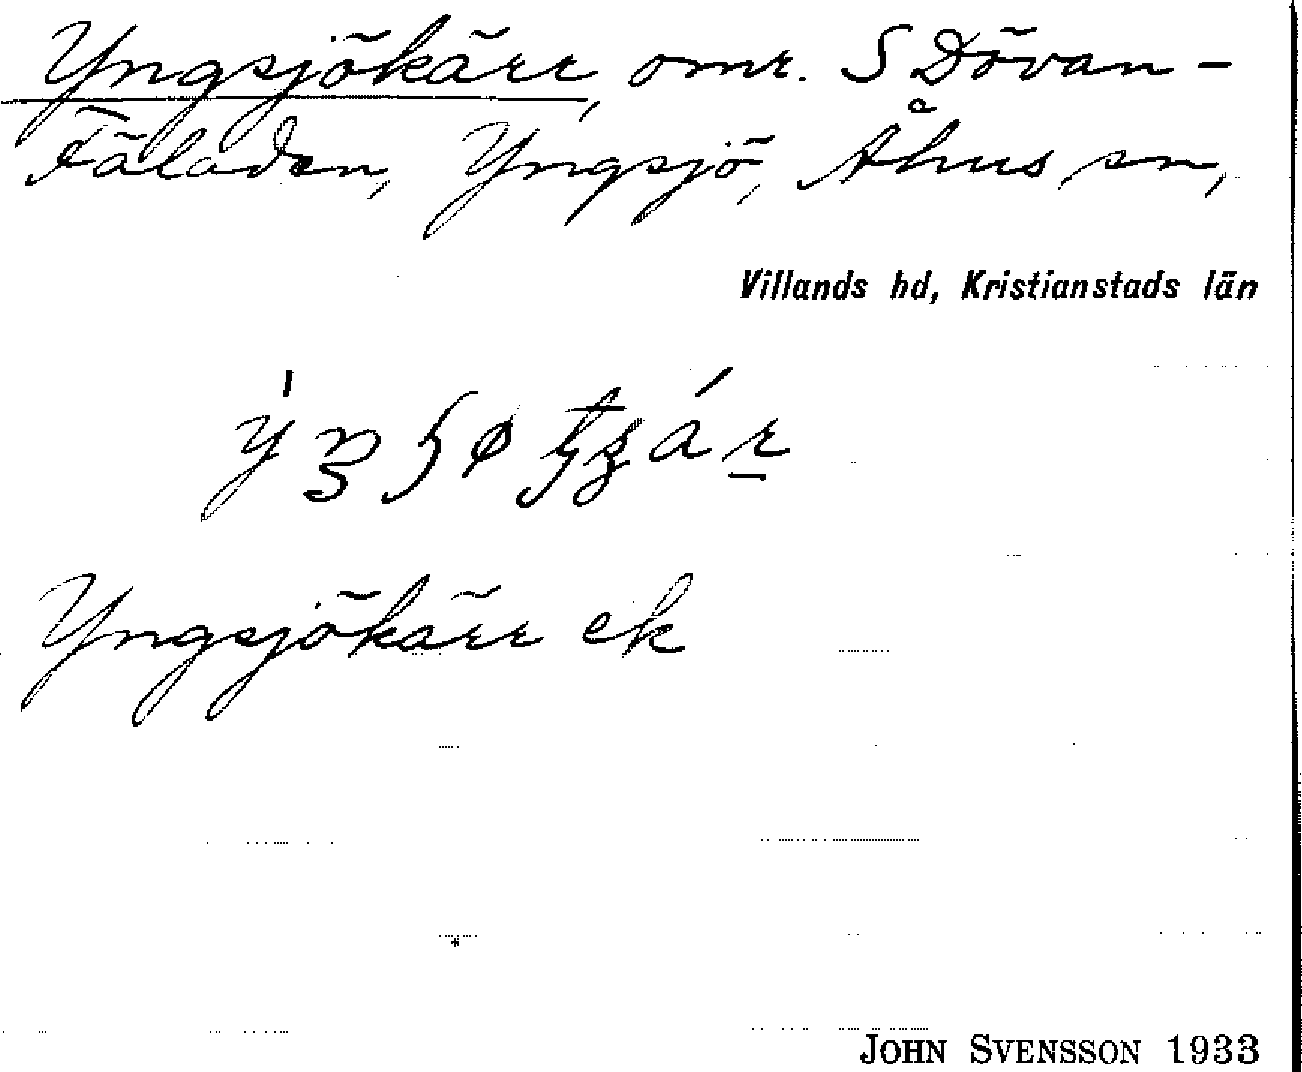 Yngsjökärr, omr. S Dövan-
Fäladen, Yngsjö, Åhus sn,
Villands hd, Kristianstads län
Yngsjökärr ek
JOHN SVENSSON 1933